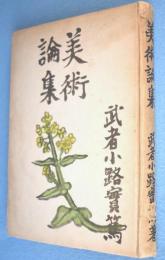 美術
論集
武者小路實篤
美術論集
武者小路實篤著